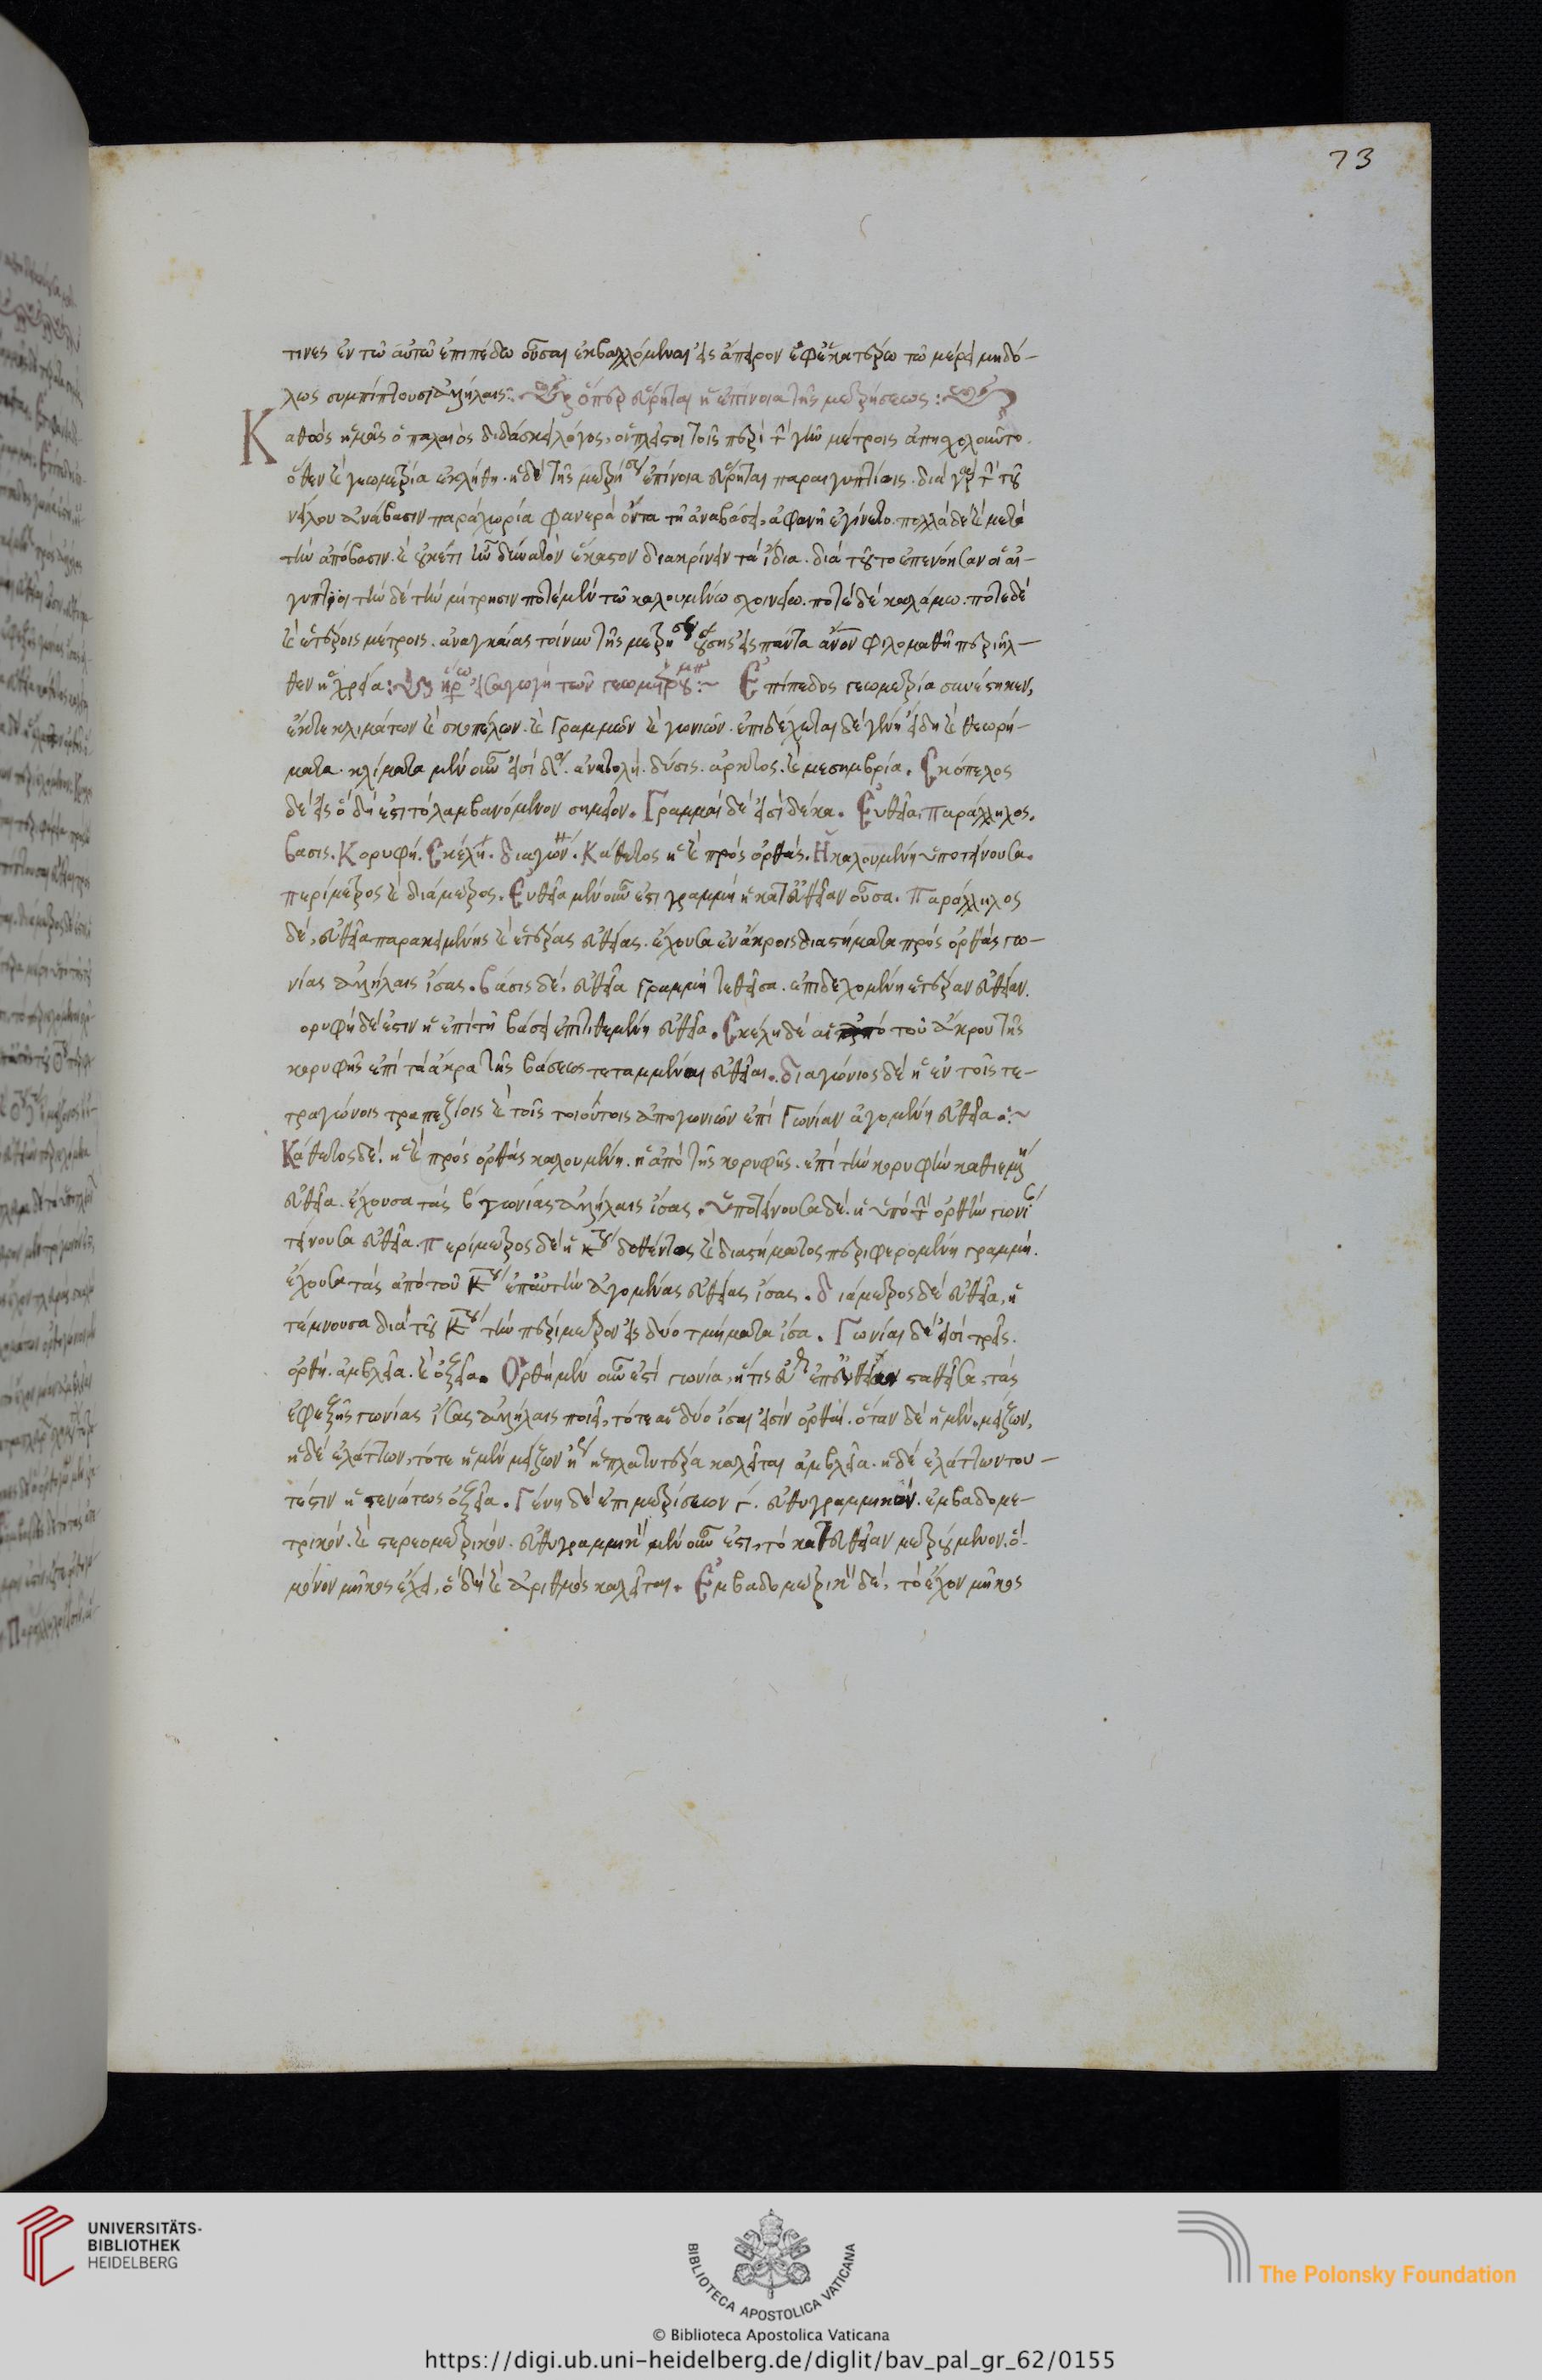 73
τινες ἐν τῶ αὐτῶ ἐπιπέδω οὖσαι ἐκβαλλόμεναι εἰς ἄπειρον ἐφ' ἑκατέρω τῶ μέρει μηδό-
λως συμπίπτουσιν ἀλλήλαις :~ ὅπερ εὕρηται ἡ ἐπίνοια τῆς μετρήσεως :~
Καθὼς ἡμᾶς ὁ παλαιὸς διδάσκει λόγος, οἱ πλεῖστοι τοῖς περὶ τὴν γῆν μέτροις ἀπησχολοῦντο.
ὅθεν καὶ γεωμετρία ἐκλήθη. ἡ δὲ τῆς μετρήσεως ἐπίνοια εὕρηται παρ' αἰγυπτίοις. διὰ γὰρ τὴν τοῦ
νείλου ἀνάβασιν παρὰ χωρία φανερὰ ὄντα τῇ ἀναβάσει, ἀφανῆ ἐγίνετο. πολλὰ δὲ καὶ μετὰ
τὴν ἀπόβασιν. καὶ οὐκέτι ἦν δυνατὸν ἕκαστον διακρίνειν τὰ ἴδια. διὰ τοῦτο ἐπενόησαν οἱ αἰ-
γύπτιοι τήνδε τὴν μέτρησιν ποτὲ μὲν τῶ καλουμένω σχοινείω. ποτὲ δὲ καλάμω. ποτὲ δὲ
καὶ ἑτέροις μέτροις. ἀναγκαίας τοίνυν τῆς μετρήσεως οὔσης εἰς πάντα ἄνον φιλομαθῆ περιῆλ-
θεν ἡ χρεία :~ εἰσαγωγὴ τῶν γεωμετρουμένων :~ Ἐπίπεδος γεωμετρία συνέστηκεν,
ἔκ τε κλιμάτων καὶ σκοπέλων. καὶ γραμμῶν καὶ γωνιῶν. ἐπιδέχεται δὲ γένη εἴδη καὶ θεωρή-
ματα. κλίματα μὲν οὖν εἰσὶ δ. ἀνατολή. δύσις. ἄρκτος. καὶ μεσημβρία. Σκόπελος
δέ εἰς ὁ δὴ ἐστὶ τὸ λαμβανόμενον σημεῖον. Γραμμαὶ δέ εἰσὶ δέκα. Εὐθεῖα, Παράλληλος.
βάσις. Κορυφή. Σκέλη. διαγών. Κάθετος ἡ καὶ πρὸς ὀρθάς. Ἡ καλουμένη ὑποτείνουσα.
περίμετρος καὶ διάμετρος. Εὐθεῖα μὲν οὖν ἐστι γραμμὴ ἡ κατ' εὐθεῖαν οὖσα. Παράλληλος
δέ, εὐθεῖα παρακειμένης καὶ ἑτέρας εὐθείας. ἔχουσα ἐν ἄκροις διαστήματα πρὸς ὀρθάς γω-
νίας ἀλλήλαις ἴσας. βάσις δέ, εὐθεῖα γραμμὴ τεθεῖσα. ἐπιδεχομένη ἑτέραν εὐθεῖαν.
ορυφὴ δέ ἐστιν ἡ ἐπὶ τῇ βάσει ἐπιτιθεμένη εὐθεῖα. Σκέλη δὲ αἱ ἀπὸ τοῦ ἄκρου τῆς
κορυφῆς ἐπὶ τὰ ἄκρα τῆς βάσεως τεταμμέναι εὐθεῖαι. διαγώνιος δὲ ἡ ἐν τοῖς τε-
τραγώνοις τραπεζίοις καὶ τοῖς τοιούτοις ἀπὸ γωνιῶν ἐπὶ Γωνίαν ἀγομένη εὐθεῖα :~
Κάθετος δέ. ἡ καὶ πρὸς ὀρθὰς καλουμένη. ἡ ἀπὸ τῆς κορυφῆς. ἐπὶ τὴν κορυφὴν καθιεμένη
εὐθεῖα. ἔχουσα τὰς β γωνίας ἀλλήλαις ἴσας. ὑποτείνουσα δέ. ἡ ὑπὸ τὴν ὀρθὴν γωνίαν
τείνουσα εὐθεῖα. Περίμετρος δὲ ἡ κέντρου δοθέντος καὶ διαστήματος περιφερομένη γραμμή.
ἔχουσα τὰς ἀπὸ τοῦ κέντρου ἐπ' αὐτὴν ἀγομένας εὐθείας ἴσας. διάμετρος δὲ εὐθεῖα, ἡ
τέμνουσα διὰ τοῦ κέντρου τὴν περίμετρον εἰς δύο τμήματα ἴσα. Γωνίαι δέ εἰσὶ τρεῖς.
ὀρθή. ἀμβλεῖα. καὶ ὀξεῖα. Ὀρθὴ μὲν οὖν ἐστὶ γωνία, ἥτις εὐθεῖα ἐπ' εὐθεῖαν σταθεῖσα, τὰς
ἐφεξῆς γωνίας ἴσας ἀλλήλαις ποιεῖ, τότε αἱ δύο ἴσαι εἰσὶν ὀρθαί. ὅταν δὲ ἡ μὲν, μείζων,
ἡ δὲ ἐλάττων, τότε ἡ μὲν μείζων ἡ πλατυτέρα καλεῖται ἀμβλεῖα. ἡ δὲ ἐλάττων του-
τέστιν ἡ στενώτως ὀξεῖα. Γένη δὲ ἐπιμετρίσεων γ. εὐθυγραμμικόν. ἐμβαδομε-
τρικόν. καὶ στερεομετρικόν. εὐθυγραμμικὸν μὲν οὖν ἐστι, τὸ κατ' εὐθεῖαν μετρούμενον. ὃ
μόνον μῆκος ἔχει, ὃ δὴ καὶ ἀριθμὸς καλεῖται. Ἐμβαδομετρικὸν δέ, τὸ ἔχον μῆκος
UNIVERSITÄTS-
BIBLIOTHEK
HEIDELBERG
BIBLIOTECA APOSTOLICA VATICANA
The Polonsky Foundation
© Biblioteca Apostolica Vaticana
https://digi.ub.uni-heidelberg.de/diglit/bav_pal_gr_62/0155